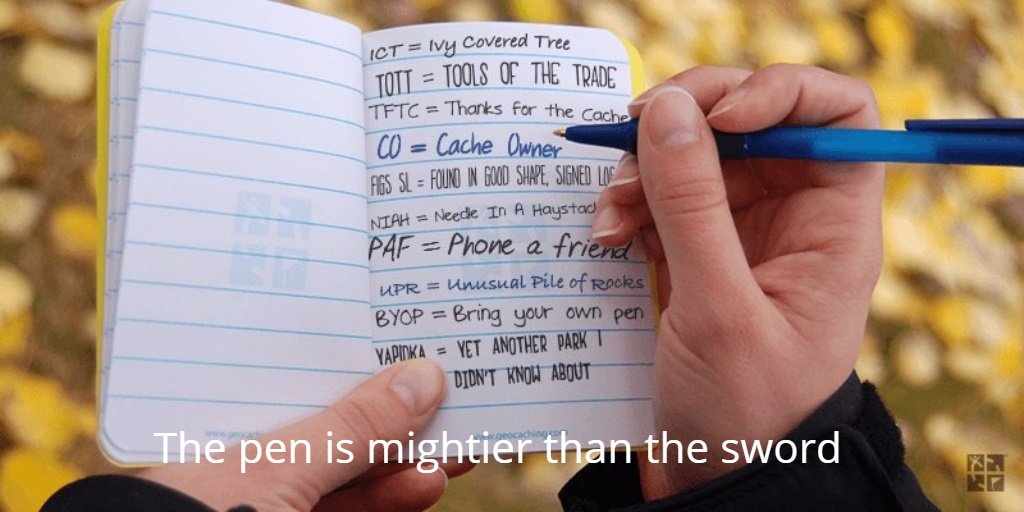 ICT = Ivy Covered Tree
TOTT = TOOLS OF THE TRADE
TFTC = Thanks for the Cache
CO = Cache Owner
FIGS SL = FOUND IN GOOD SHAPE, SIGNED LOG
NIAH = Needle In A Haystack
PAF = Phone a friend
UPR = Unusual Pile of Rocks
BYOP = Bring your own pen
YAPIDKA = YET ANOTHER PARK I
DIDN'T KNOW ABOUT
www.geocaching.com
www.geocaching.com
The pen is mightier than the sword